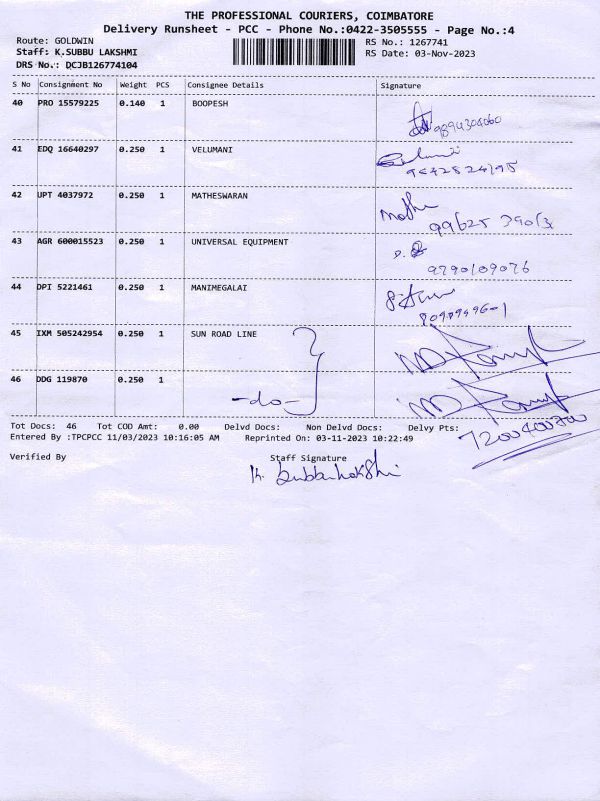 THE PROFESSIONAL COURIERS, COIMBATORE
Delivery Runsheet - PCC - Phone No.:0422-3505555 - Page No.:4
Route: GOLDWIN RS No.: 1267741
Staff: K.SUBBU LAKSHMI RS Date: 03-Nov-2023
DRS No.: DCJB126774104
S No Consignment No Weight PCS Consignee Details Signature
40 PRO 15579225 0.140 1 BOOPESH
41 EDQ 16640297 0.250 1 VELUMANI
42 UPT 4037972 0.250 1 MATHESWARAN
43 AGR 600015523 0.250 1 UNIVERSAL EQUIPMENT
9790109076
44 DPI 5221461 0.250 1 MANIMEGALAI
45 IXM 505242954 0.250 1 SUN ROAD LINE
46 DDG 119870 0.250 1
-do-
Tot Docs: 46 Tot COD Amt: 0.00 Delvd Docs: Non Delvd Docs: Delvy Pts:
Entered By :TPCPCC 11/03/2023 10:16:05 AM Reprinted On: 03-11-2023 10:22:49
Verified By Staff Signature
K. Subbulakshmi